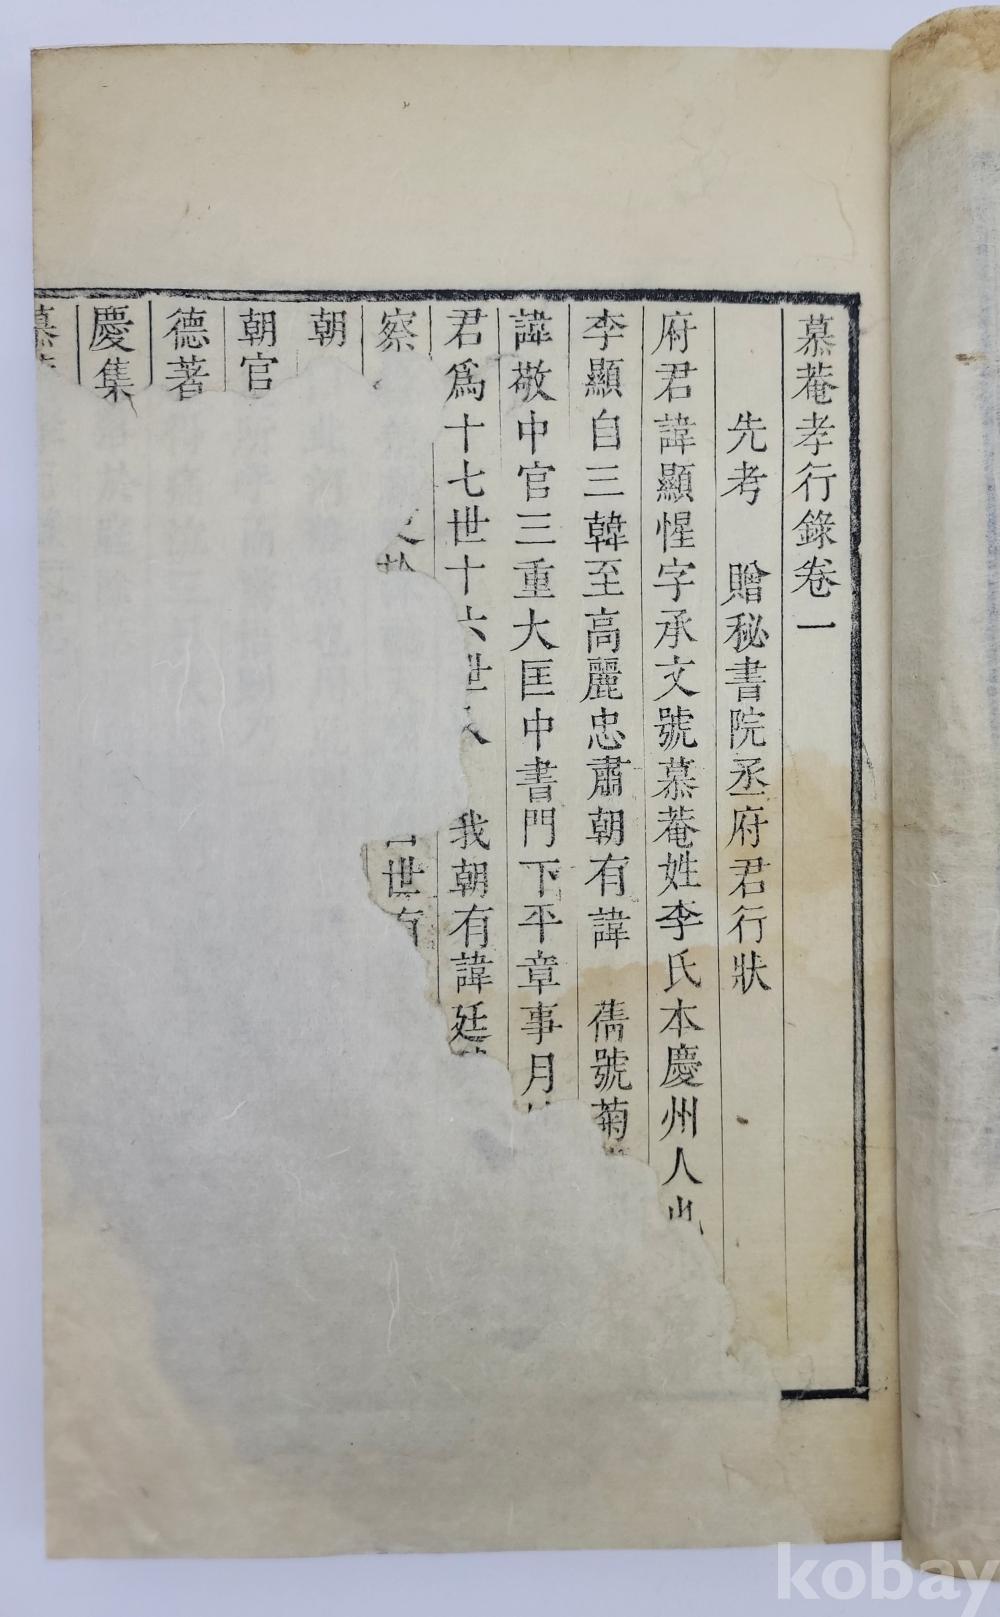 慕菴孝行錄卷一
先考 贈秘書院丞府君行狀
府君諱顯惺字承文號慕菴姓李氏本慶州人
李顯自三韓至高麗忠肅朝有諱 蒨號菊
諱敬中官三重大匡中書門下平章事月
君爲十七世十六世 我朝有諱廷
察 世有
朝
朝官
德著
慶集
慕
kobay